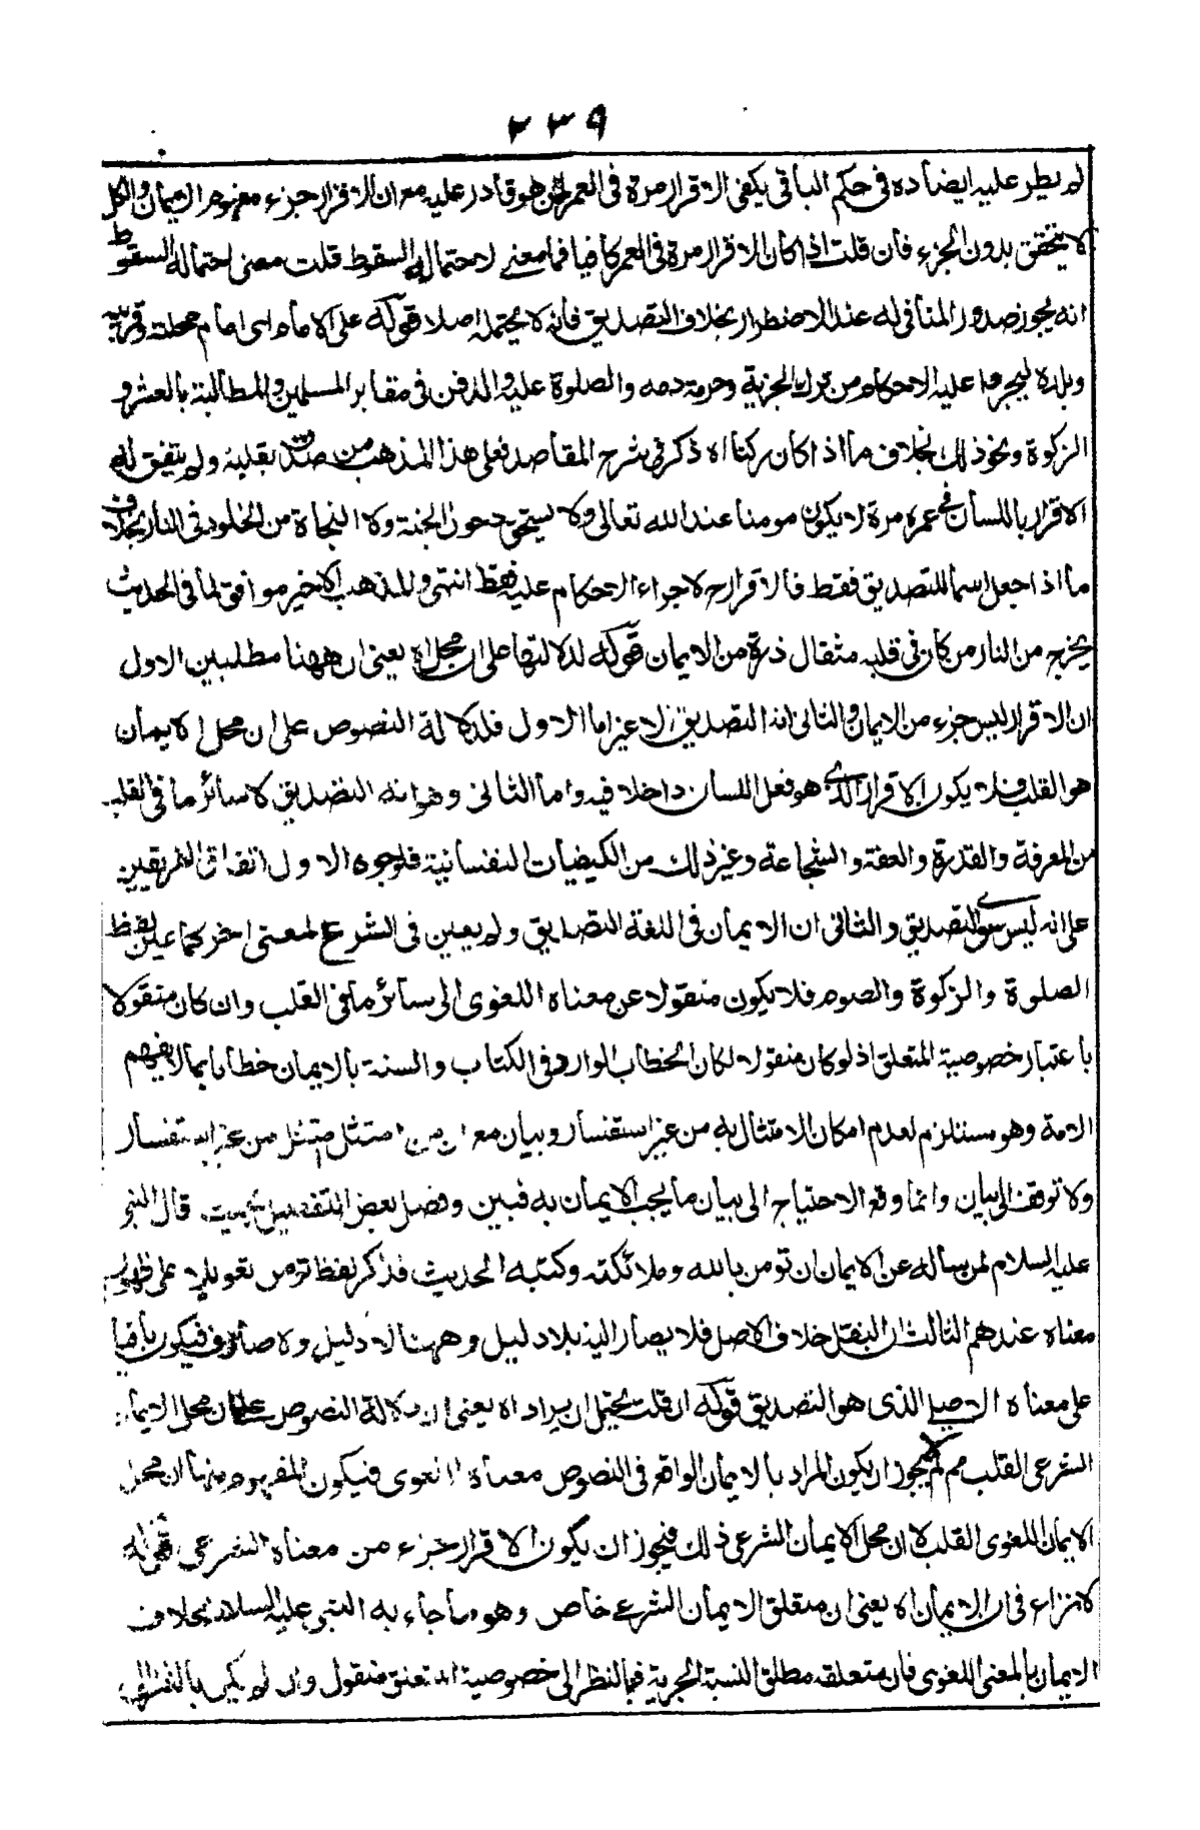 ٢٣٩
لم يطرء عليه ما يضاده في حكم الباقي يكفي الاقرار مرة في العمر لمن هو قادر عليه مع ان الاقرار جزء مفهوم الايمان والكل
لا يتحقق بدون الجزء فان قلت اذا كان الاقرار مرة في العمر كافيا فما معنى احتماله السقوط قلت معنى احتماله السقوط
انه يجوز صدور المنافي له عند الاضطرار بخلاف التصديق فانه لا يحتمله اصلا قوله على الامام اى امام محلته وقريته
وبلده ليجرى عليه الاحكام من ترك الجزية وحرمة دمه والصلوة عليه والدفن في مقابر المسلمين والمطالبة بالعشر و
الزكوة ونحو ذلك بخلاف ما اذا كان ركنا اه ذكر في شرح المقاصد فعلى هذا المذهب من صدق بقلبه ولم يتفق له
الاقرار باللسان في عمره مرة لا يكون مومنا عند الله تعالى ولا يستحق دخول الجنة ولا النجاة من الخلود في النار بخلاف
ما اذا جعل اسما للتصديق فقط فالاقرار ح لاجراء الاحكام عليه فقط انتهى والمذهب الاخير موافق لما في الحديث
يخرج من النار من كان في قلبه مثقال ذرة من الايمان قوله لدلالتها على ان محل اه يعنى ان ههنا مطلبين الاول
ان الاقرار ليس جزء من الايمان والثانى انه التصديق لا غير اما الاول فلدلالة النصوص على ان محل الايمان
هو القلب فلا يكون الاقرار الذى هو فعل اللسان داخلا فيه واما الثانى وهو انه التصديق لا سائر ما في القلب
من المعرفة والقدرة والعفة والشجاعة وغير ذلك من الكيفيات النفسانية فلوجوه الاول اتفاق الفريقين
على انه ليس سوى التصديق والثانى ان الايمان في اللغة التصديق ولم يعين في الشرع لمعنى اخر كما عين لفظ
الصلوة والزكوة والصوم فلا يكون منقولا عن معناه اللغوى الى سائر ما في القلب وان كان منقولا
باعتبار خصوصية المتعلق اذ لو كان منقولا لكان الخطاب الوارد في الكتاب والسنة بالايمان خطابا بما لا يفهم
الامة وهو مستلزم لعدم امكان الامتثال به من غير استفسار وبيان مع ان من امتثل امتثل من غير استفسار
ولا توقف الى بيان وانما وقع الاحتياج الى بيان ما يجب الايمان به فبين وفصل بعض التفصيل حيث قال النبى
عليه السلام لمن سأله عن الايمان ان تومن بالله وملائكته وكتبه الحديث فذكر لفظ تومن تعويلا على ظهور
معناه عندهم الثالث ان النقل خلاف الاصل فلا يصار اليه بلا دليل وههنا لا دليل ولا صارف فيكون باقيا
على معناه الاصلى الذى هو التصديق قوله ان قلت يحتمل ان يراد اه يعنى ان دلالة النصوص على ان محل الايمان
الشرعى القلب مم لم لا يجوز ان يكون المراد بالايمان الواقع في النصوص معناه اللغوى فيكون المفهوم منها ان محل
الايمان اللغوى القلب لا ان محل الايمان الشرعى ذلك فيجوز ان يكون الاقرار جزء من معناه الشرعى قوله
لا نزاع في ان الايمان اه يعنى ان متعلق الايمان الشرعى خاص وهو ما جاء به النبى عليه السلام بخلاف
الايمان بالمعنى اللغوى فان متعلقه مطلق النسبة الخبرية فبالنظر الى خصوصية المتعلق منقول وان لم يكن بالنظر الى